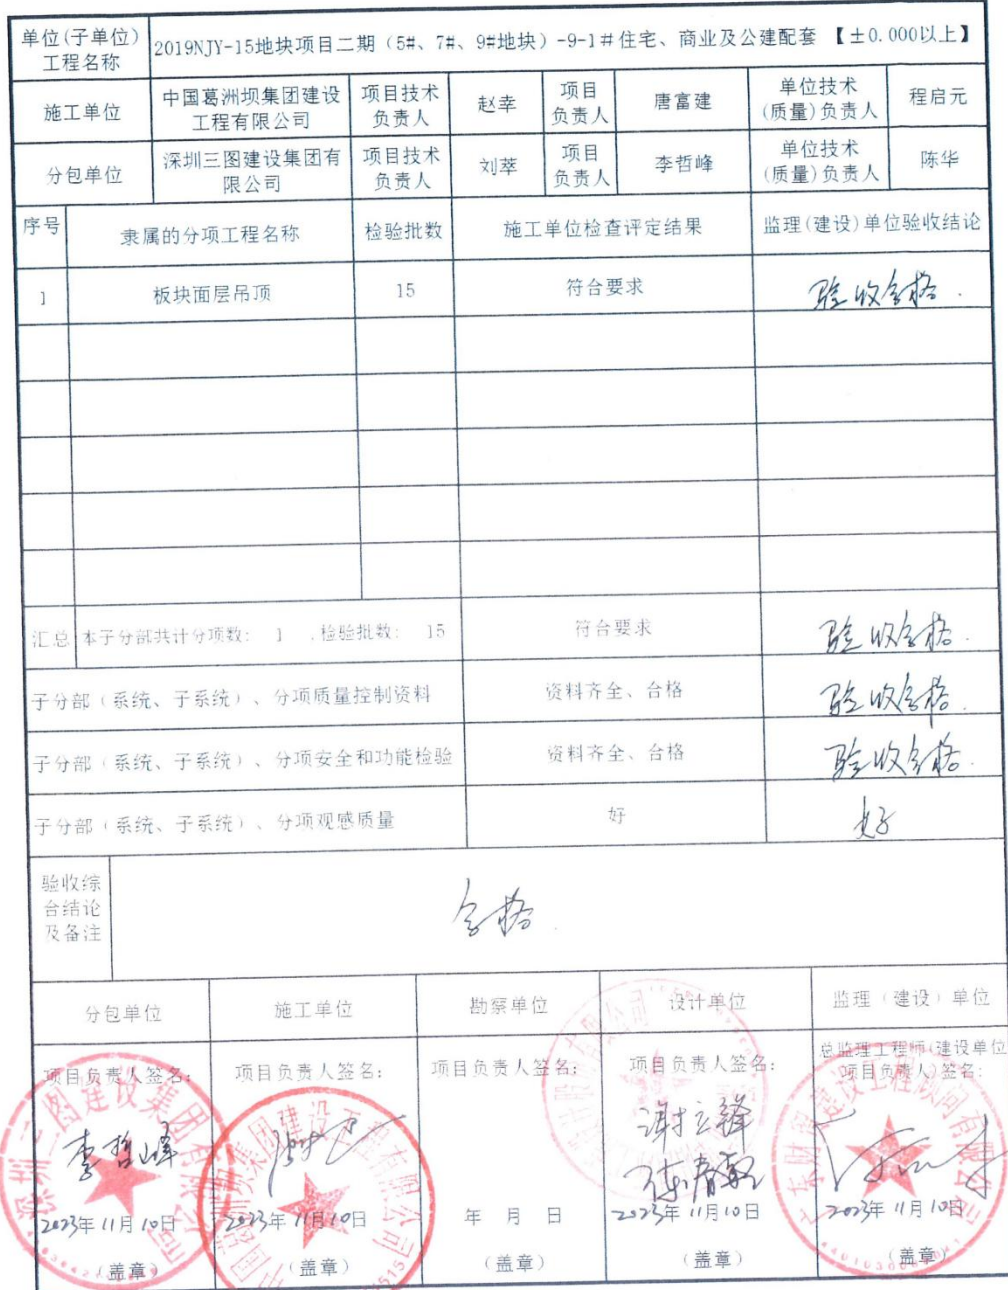 单位(子单位)
工程名称
2019NJY-15地块项目二期（5#、7#、9#地块）-9-1#住宅、商业及公建配套 【±0.000以上】
施工单位
中国葛洲坝集团建设
工程有限公司
项目技术
负责人
赵幸
项目
负责人
唐富建
单位技术
(质量)负责人
程启元
分包单位
深圳三图建设集团有
限公司
项目技术
负责人
刘萃
项目
负责人
李哲峰
单位技术
(质量)负责人
陈华
序号
隶属的分项工程名称
检验批数
施工单位检查评定结果
监理(建设)单位验收结论
1
板块面层吊顶
15
符合要求
验收合格.
汇总
本子分部共计分项数: 1 .检验批数: 15
符合要求
验收合格.
子分部（系统、子系统）、分项质量控制资料
资料齐全、合格
验收合格.
子分部（系统、子系统）、分项安全和功能检验
资料齐全、合格
验收合格.
子分部（系统、子系统）、分项观感质量
好
好
验收综
合结论
及备注
合格.
分包单位
施工单位
勘察单位
设计单位
监理（建设）单位
项目负责人签名:
项目负责人签名:
项目负责人签名:
项目负责人签名:
总监理工程师(建设单位
项目负责人)签名:
李哲峰
2023年 11月10日
2023年 11月10日
年 月 日
2023年 11月10日
2023年 11月10日
(盖章)
(盖章)
(盖章)
(盖章)
(盖章)
深圳三图建设集团有限公司
中国葛洲坝集团建设工程有限公司